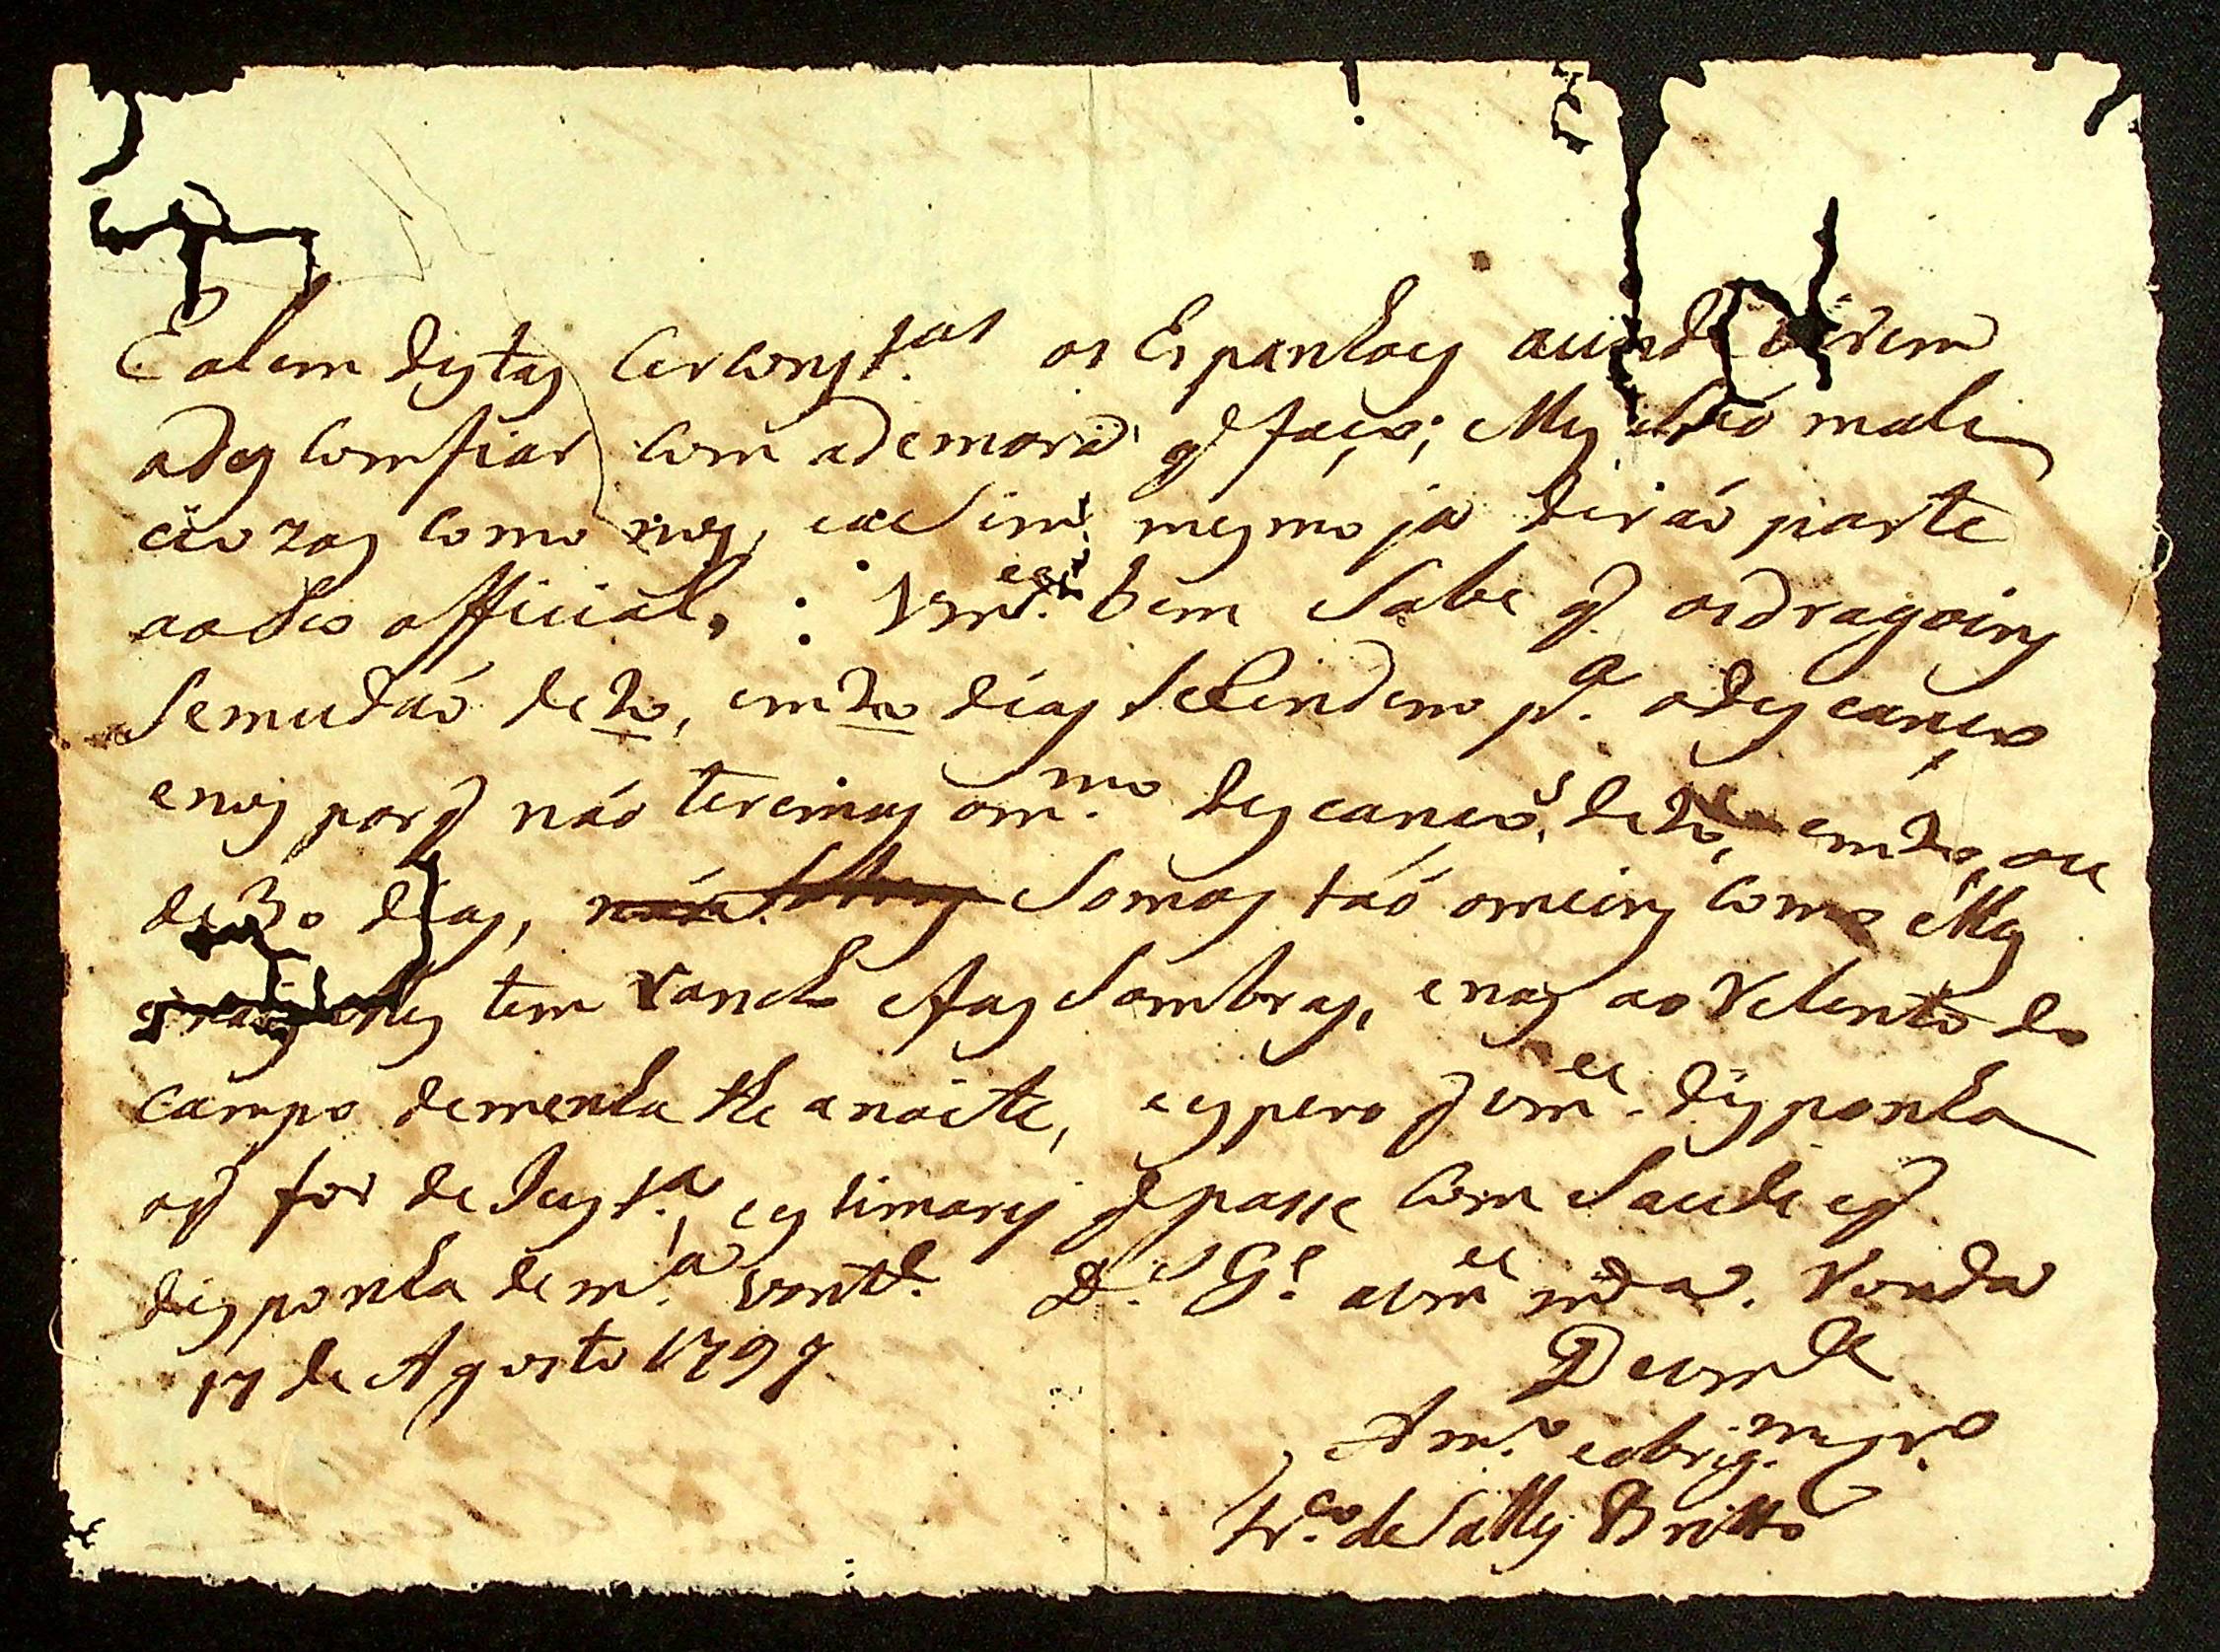 E alem destas Cerconst.as os Espanhoes auinde
a desComfiar Com ademora q̃ faço; elles Saó mali
ciozos Como nos, eaSim mesmo ja deráo parte
aoSeo official, : Vm.ces bem Sabe q̃ osdragoins
Semudáo de20, em20 dias SeRendem p.a odescanço
enos porq̃ náo teremos om.mo descanço, de20, em20, ou
de30 dias, Somos táó omeins Como elles
elles tem Rancho efas Sombras, enos ao Relento do
campo demenha the anoite, espero q̃ vm.ce disponha
oq̃ for de Just.a, estimarei q̃ passe Com Saude eq̃
disponha dem.a vontd.e D.s G.e avm.ce Ronda
17 de Agosto 1797
Devm.ce
Am.o eobrig.mo
Fr.co deSalles Britto